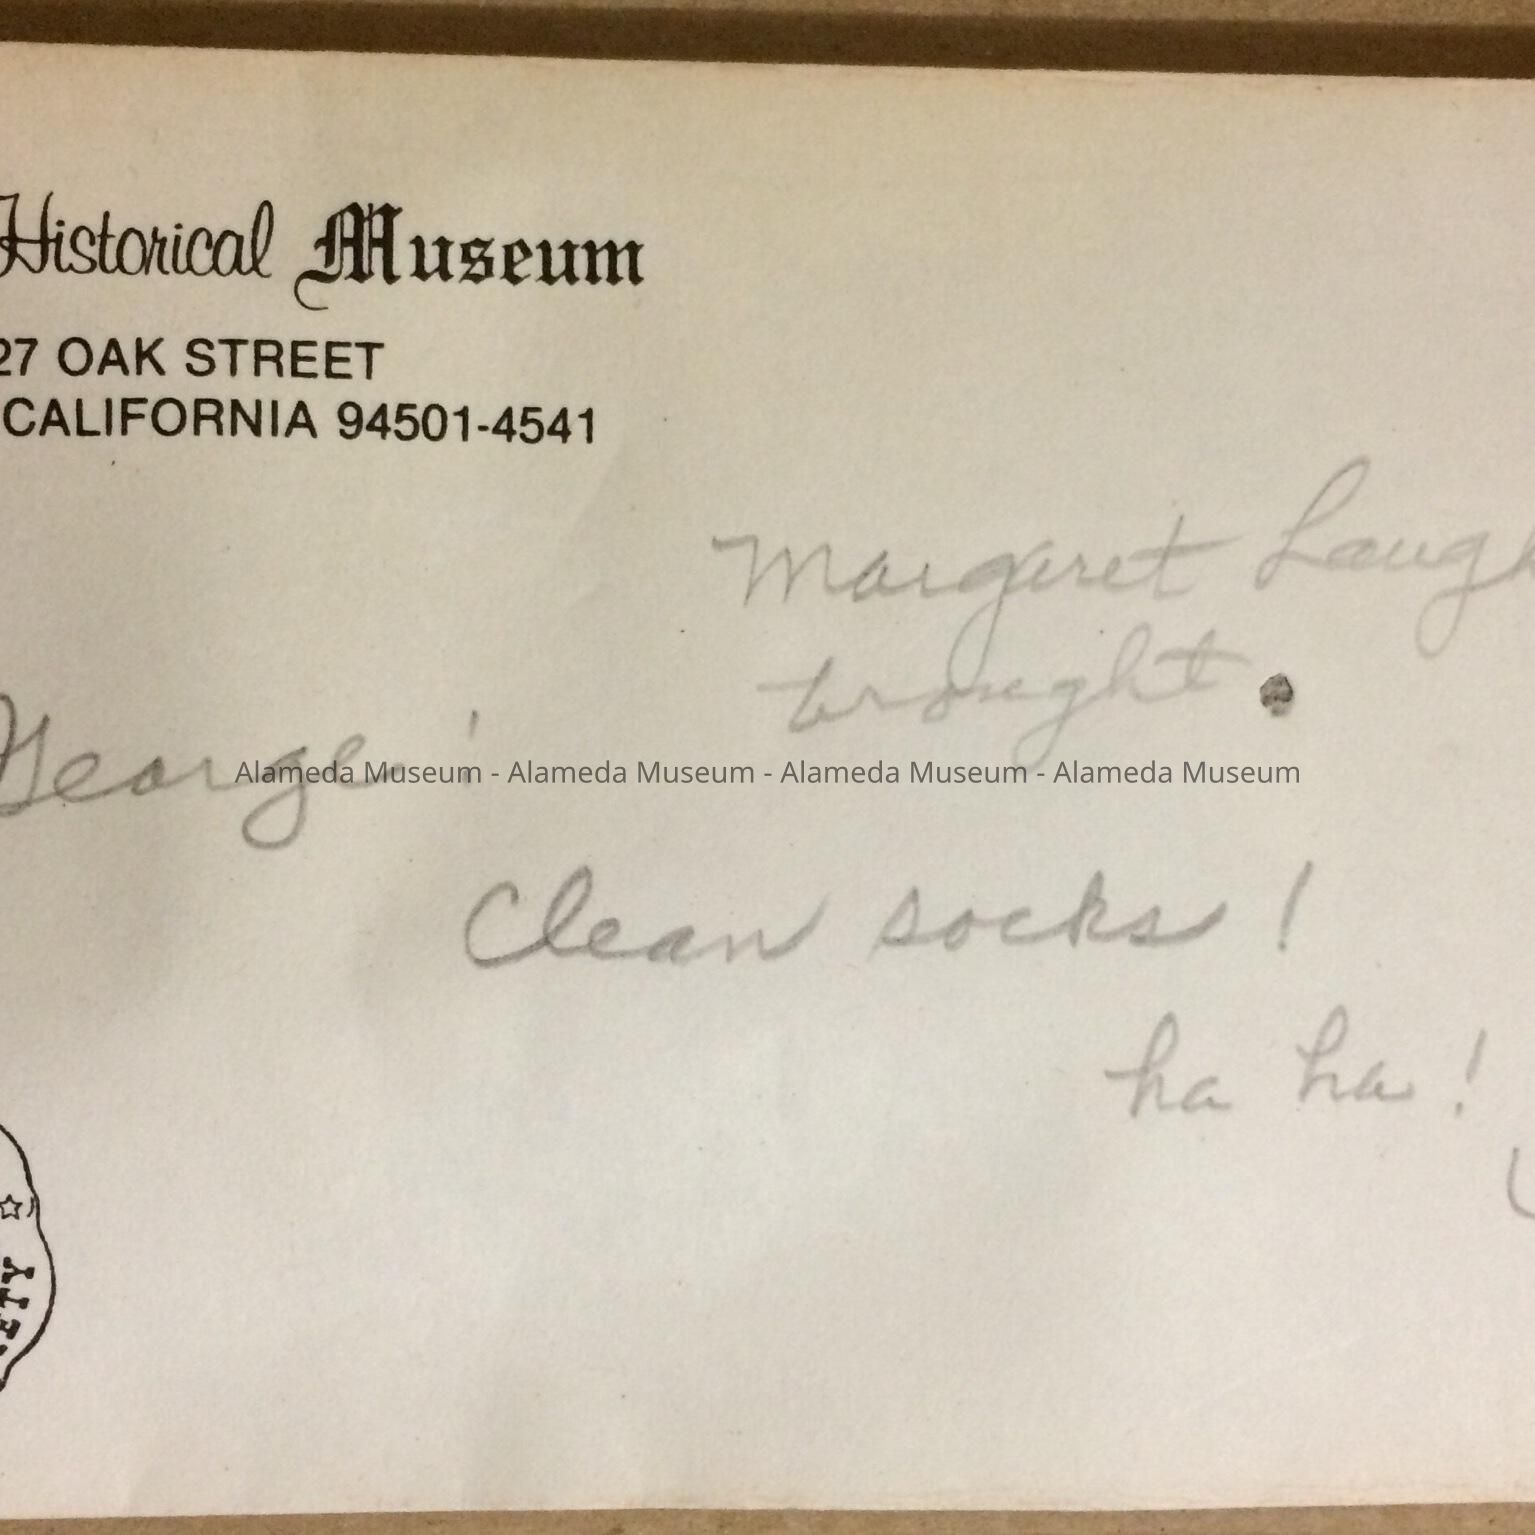 Historical Museum
27 OAK STREET
CALIFORNIA 94501-4541
Margaret Laugh
brought
George!
Alameda Museum - Alameda Museum - Alameda Museum - Alameda Museum
Clean socks!
ha ha!
ETY